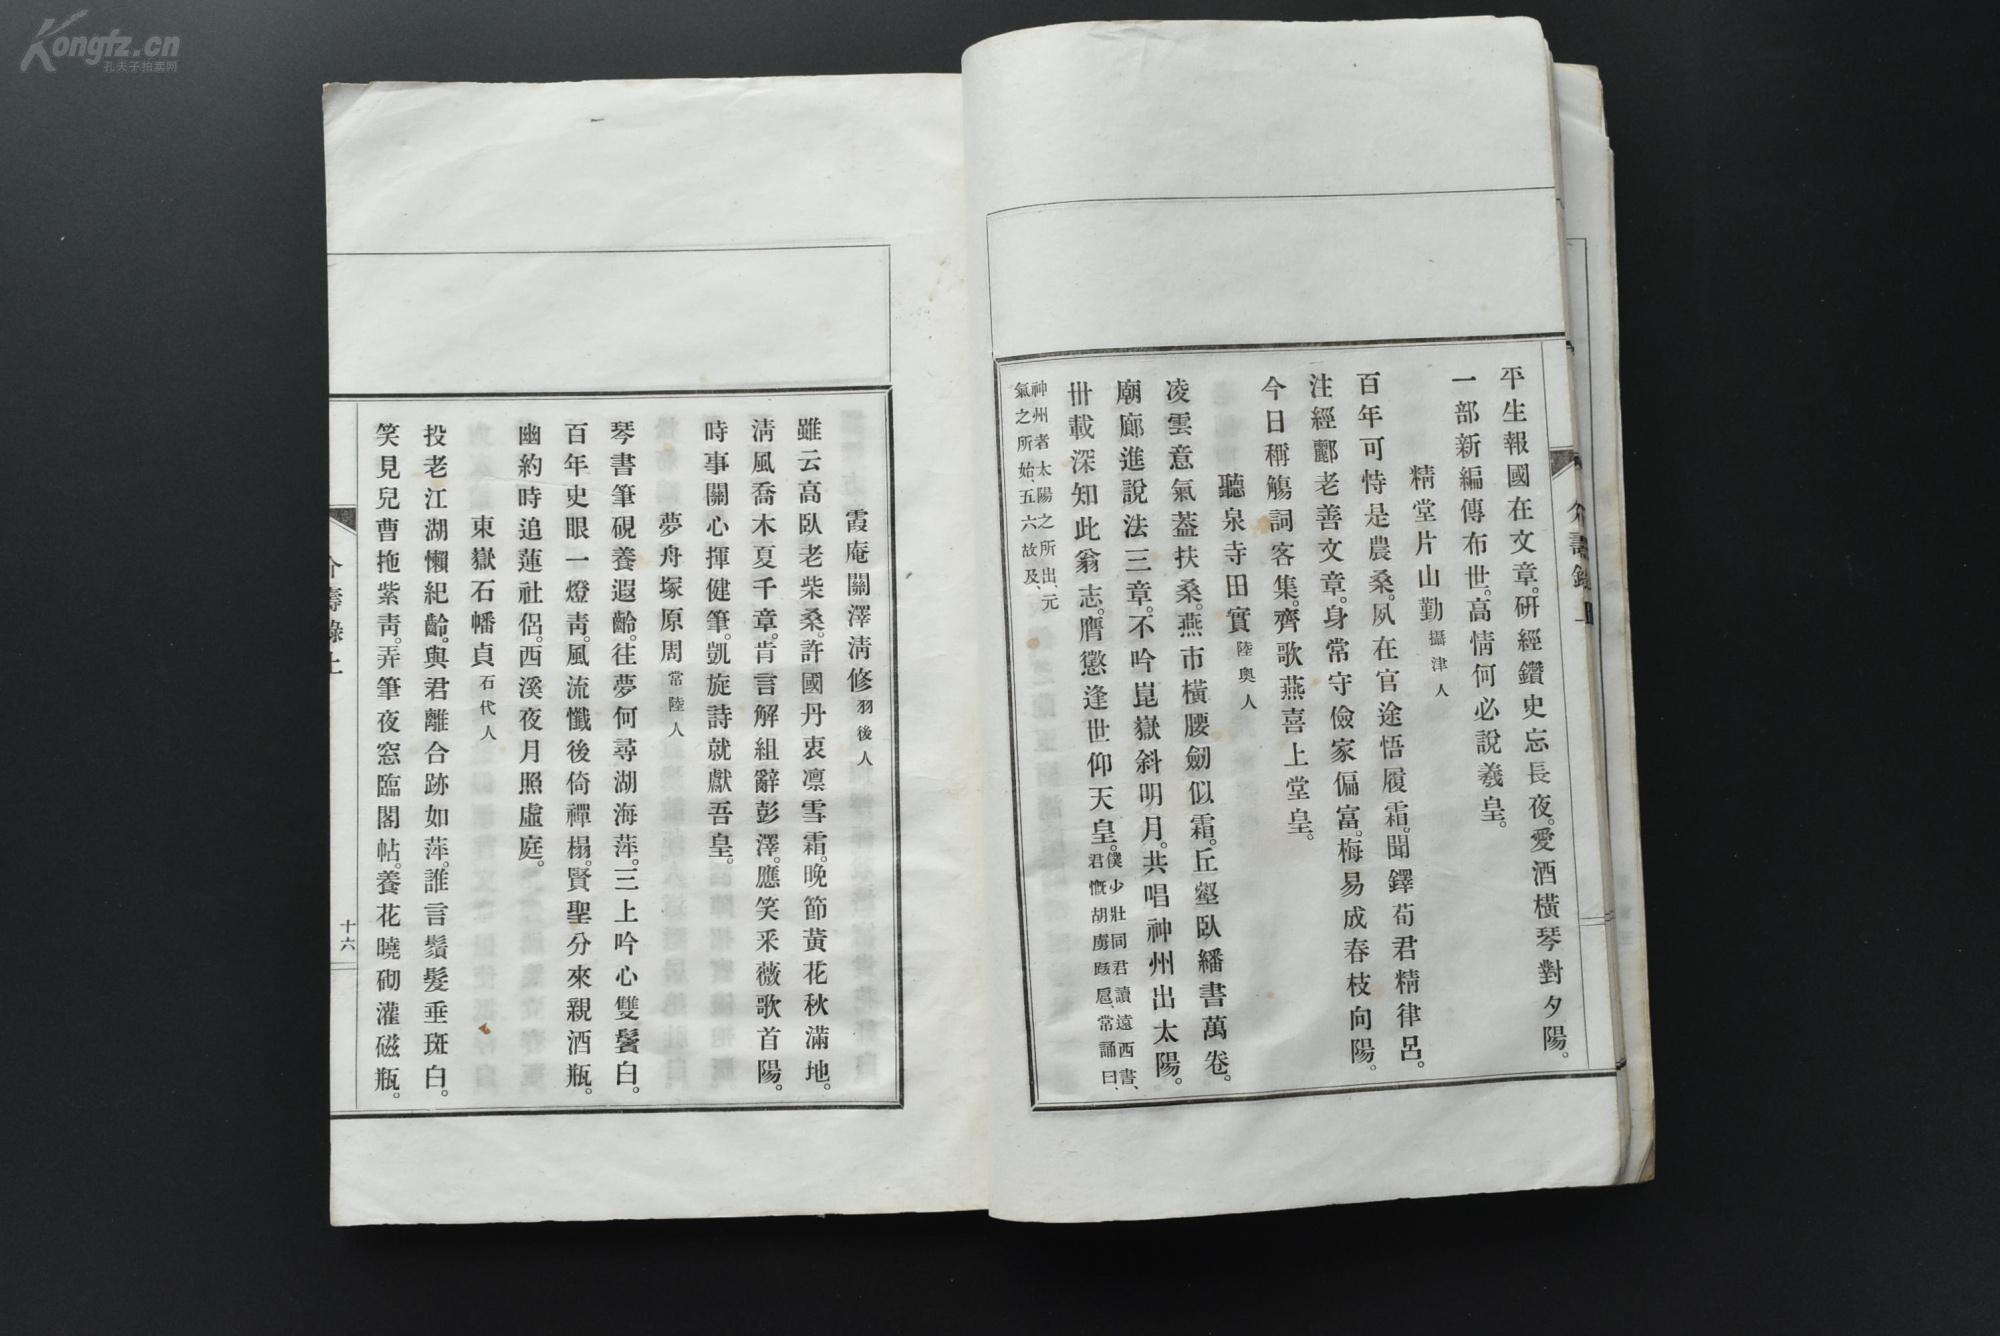 Kongfz.cn
孔夫子拍卖网
平生報國在文章。研經鑽史忘長夜。愛酒橫琴對夕陽。
一部新編傳布世。高情何必說羲皇。
精堂片山勤 攝津人
百年可恃是農桑。夙在官途悟履霜。聞鐸荀君精律呂。
注經酈老善文章。身常守儉家偏富。梅易成春枝向陽。
今日稱觴詞客集。齊歌燕喜上堂皇。
聽泉寺田實 陸奧人
凌雲意氣蓋扶桑。燕市橫腰劒似霜。丘壑臥繙書萬卷。
廟廊進說法三章。不吟崑嶽斜明月。共唱神州出太陽。
卅載深知此翁志。膺懲逢世仰天皇。僕少壯同君讀遠西書、
君慨胡虜跋扈、常誦曰、
神州者太陽之所出、元
氣之所始、五六故及、
介壽錄上
霞庵關澤淸修 羽後人
雖云高臥老柴桑。許國丹衷凛雪霜。晚節黃花秋滿地。
淸風喬木夏千章。肯言解組辭彭澤。應笑釆薇歌首陽。
時事關心揮健筆。凱旋詩就獻吾皇。
夢舟塚原周 常陸人
琴書筆硯養遐齡。往夢何尋湖海萍。三上吟心雙鬢白。
百年史眼一燈靑。風流懺後倚禪榻。賢聖分來親酒瓶。
幽約時追蓮社侶。西溪夜月照虛庭。
東嶽石幡貞 石代人
投老江湖懶紀齡。與君離合跡如萍。誰言鬚髮垂斑白。
笑見兒曹拖紫靑。弄筆夜窓臨閣帖。養花曉砌灌磁瓶。
介壽錄上
十六